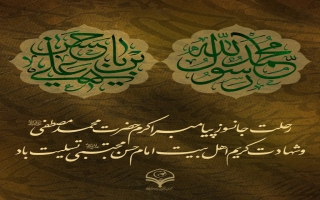 محمد رسول الله
یا حسن بن علی
رحلت جانسوز پیامبر اکرم حضرت محمد مصطفی
و شهادت کریم اهل بیت امام حسن مجتبی تسلیت باد